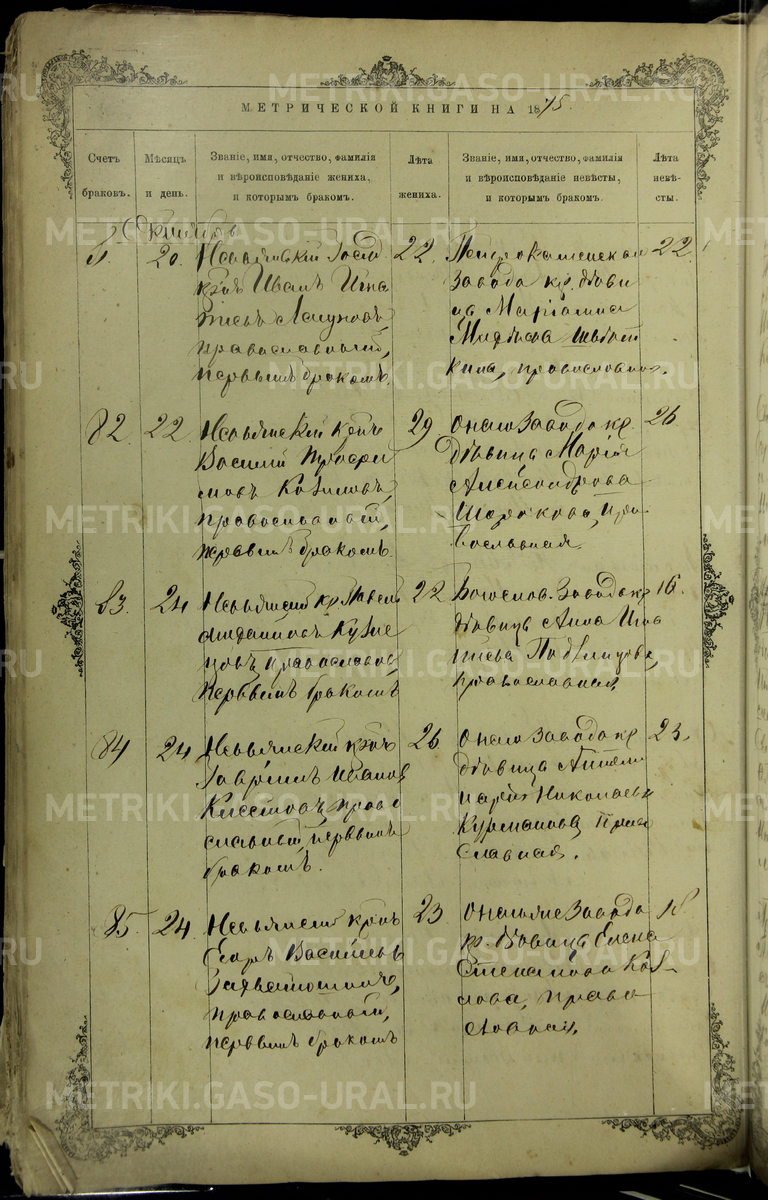 МЕТРИЧЕСКОЙ КНИГИ НА 1875.
Счетъ браковъ.
Мѣсяцъ и день.
Званіе, имя, отчество, фамилія
и вѣроисповѣданіе жениха,
и которымъ бракомъ.
Лѣта жениха.
Званіе, имя, отчество, фамилія
и вѣроисповѣданіе невѣсты,
и которымъ бракомъ.
Лѣта невѣсты.
Октябрь
20.
кр̃нъ Иванъ Игна
тьевъ
православный,
первымъ бракомъ.
22.
Петрокаменскаго
Завода кр. дѣви
ца
православная.
22.
82.
22.
Невьянский крнъ
Василий
православный,
первымъ бракомъ.
29
Онаго Завода кр.
дѣвица Марія
Александрова
пра
вославная,
26
83.
24
Невьянский кр. Павелъ
Кузне
цовъ, православный,
первымъ бракомъ
22
Завода кр
дѣвица Анна Игна
тьева
православная,
16.
84
24
Невьянский крнъ
Гавріилъ Ивановъ
право
славный, первымъ
бракомъ.
26
Онаго Завода кр
дѣвица
Николаева
Курманова, Право
славная.
23.
85.
24.
Невьянский крнъ
Егоръ Васильевъ
православный,
первымъ бракомъ
23
Завода
кр. дѣвица Елена
Степанова Коз-
лова, право
славная,
18
METRIKI.GASO-URAL.RU